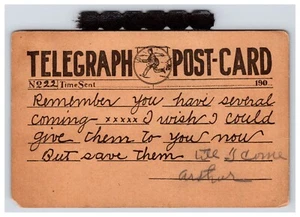 TELEGRAPH POST-CARD
No 22 Time Sent 190
Remember you have several
coming - xxxxx I wish I could
give them to you now
But save them till I come
Arthur